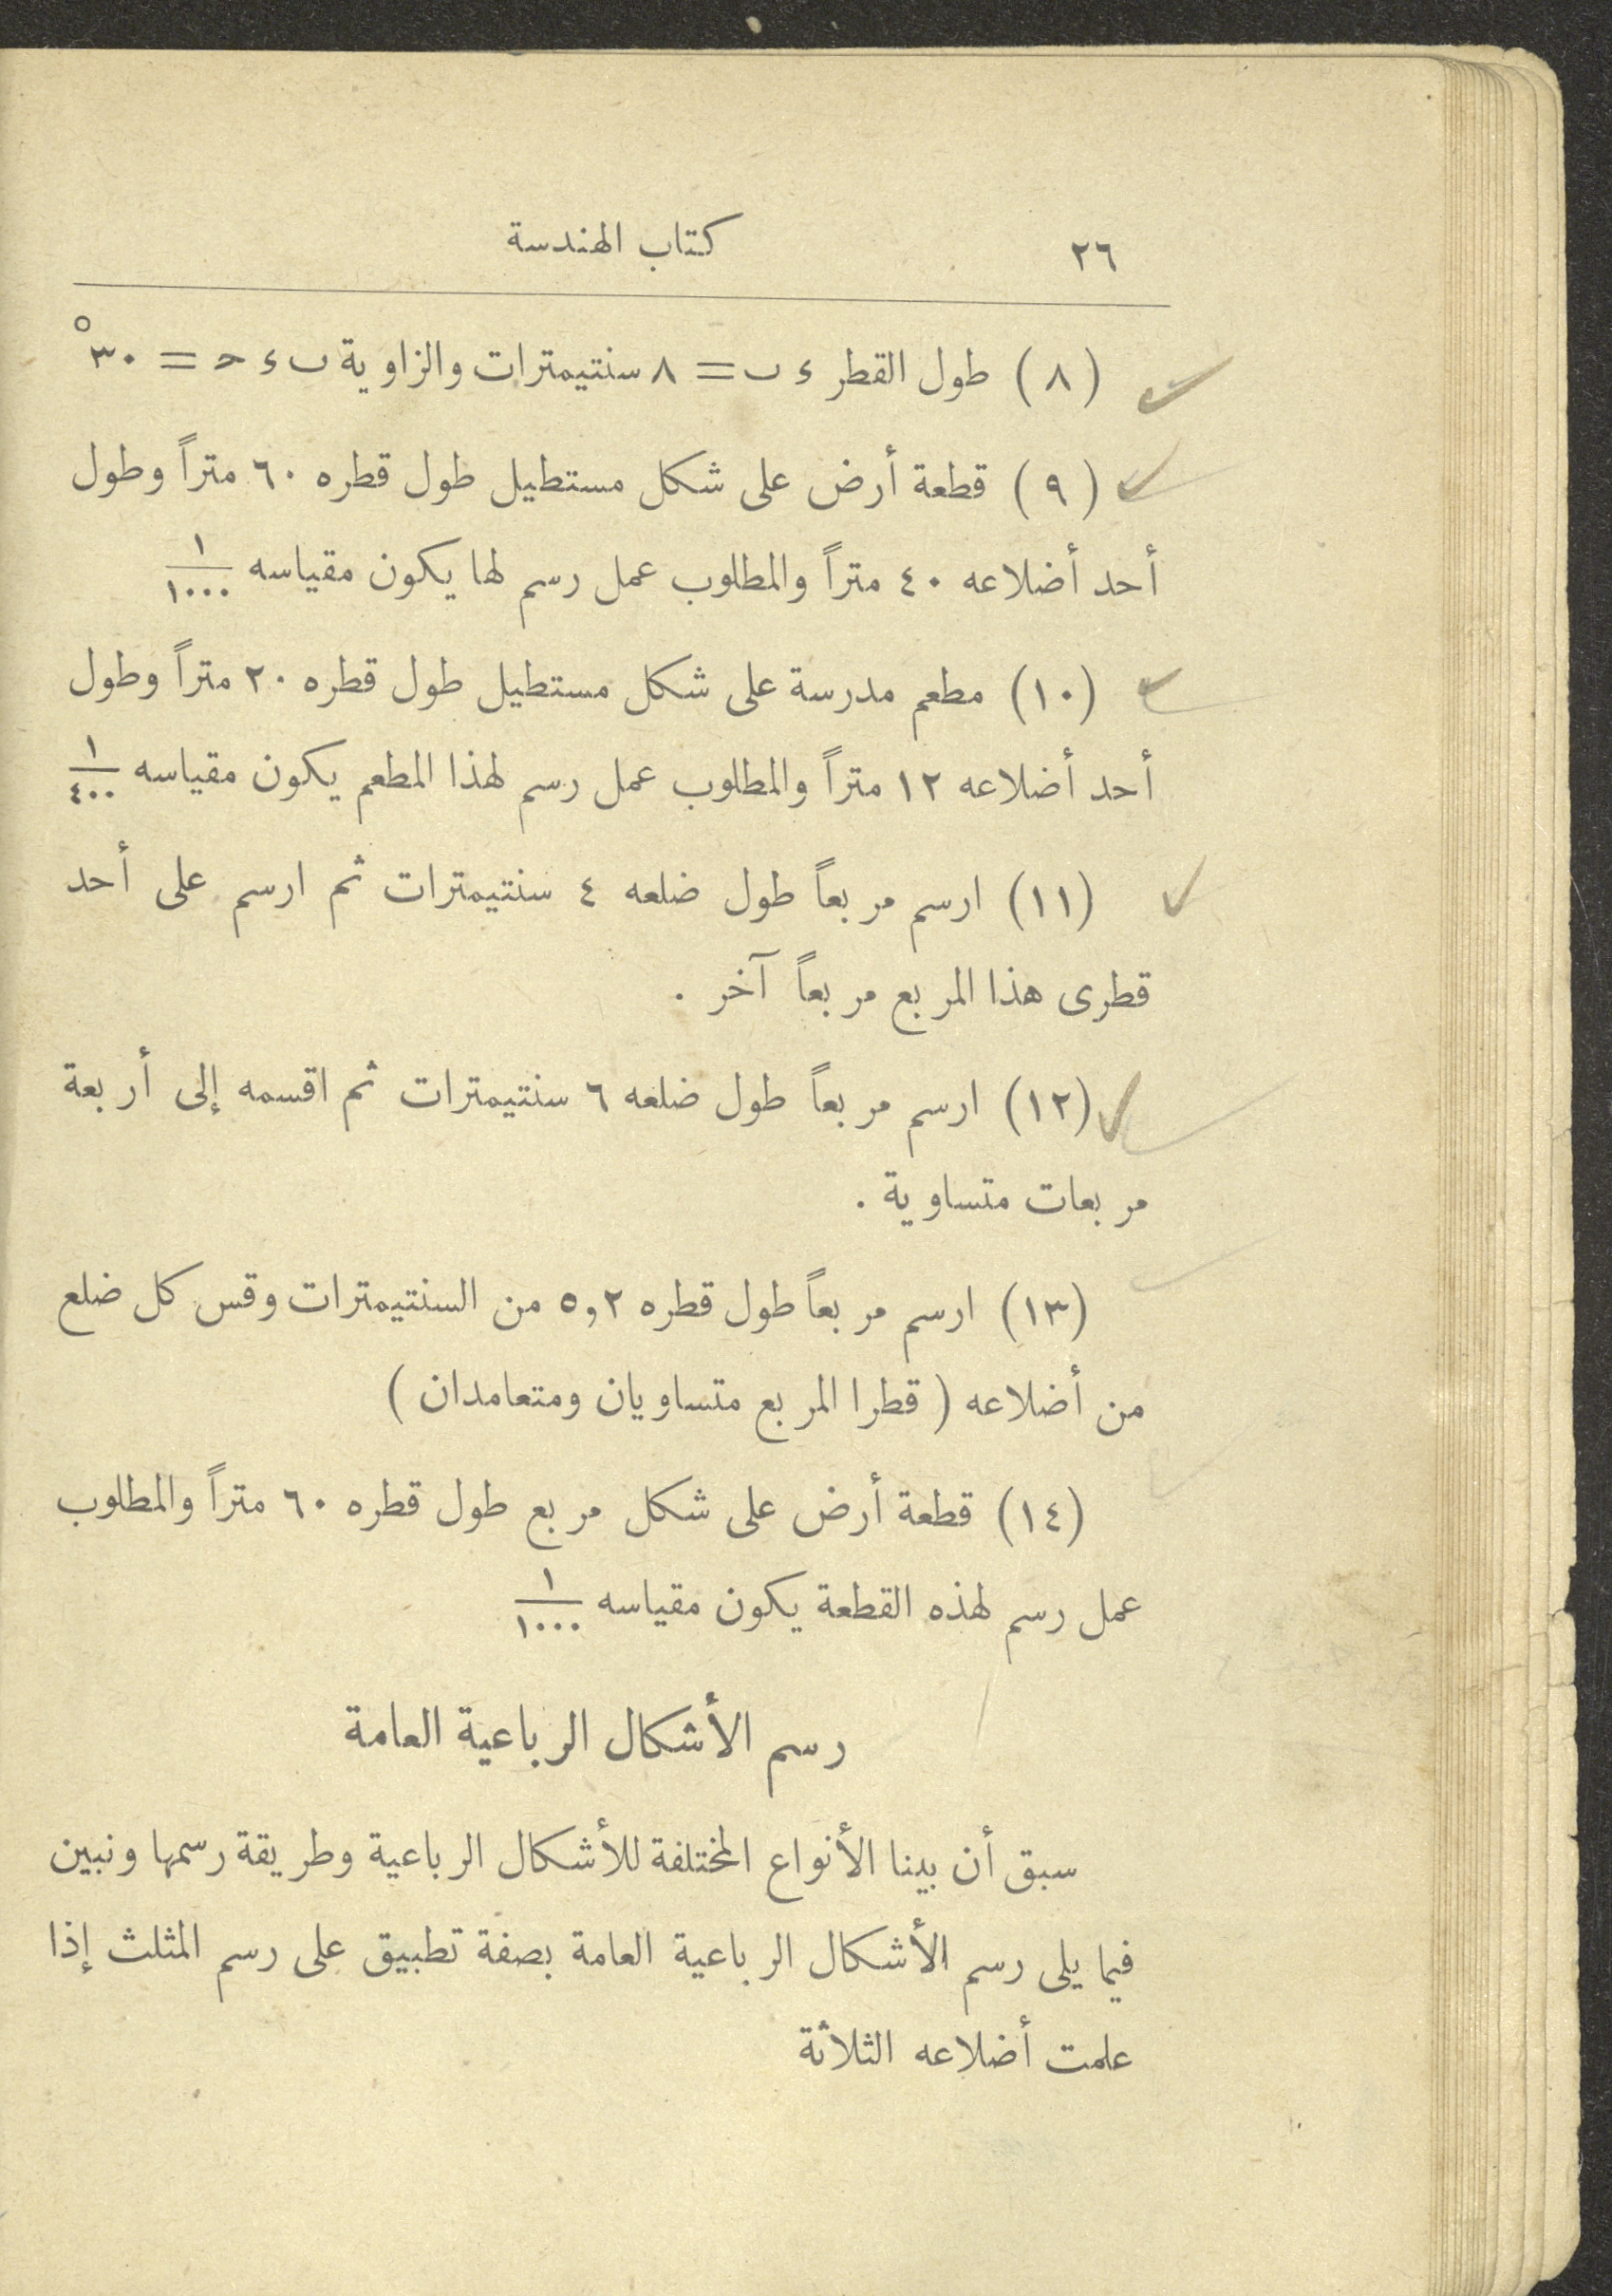 ٢٦
كتاب الهندسة
(٨) طول القطر ء ب = ٨ سنتيمترات والزاوية ب ء ح = ٣٠°
(٩) قطعة أرض على شكل مستطيل طول قطره ٦٠ متراً وطول
أحد أضلاعه ٤٠ متراً والمطلوب عمل رسم لها يكون مقياسه ١/١٠٠٠
(١٠) مطعم مدرسة على شكل مستطيل طول قطره ٢٠ متراً وطول
أحد أضلاعه ١٢ متراً والمطلوب عمل رسم لهذا المطعم يكون مقياسه ١/٤٠٠
(١١) ارسم مربعاً طول ضلعه ٤ سنتيمترات ثم ارسم على أحد
قطرى هذا المربع مربعاً آخر .
(١٢) ارسم مربعاً طول ضلعه ٦ سنتيمترات ثم اقسمه إلى أربعة
مربعات متساوية .
(١٣) ارسم مربعاً طول قطره ٥,٢ من السنتيمترات وقس كل ضلع
من أضلاعه ( قطرا المربع متساويان ومتعامدان )
(١٤) قطعة أرض على شكل مربع طول قطره ٦٠ متراً والمطلوب
عمل رسم لهذه القطعة يكون مقياسه ١/١٠٠٠
رسم الأشكال الرباعية العامة
سبق أن بينا الأنواع المختلفة للأشكال الرباعية وطريقة رسمها ونبين
فيما يلى رسم الأشكال الرباعية العامة بصفة تطبيق على رسم المثلث إذا
علمت أضلاعه الثلاثة